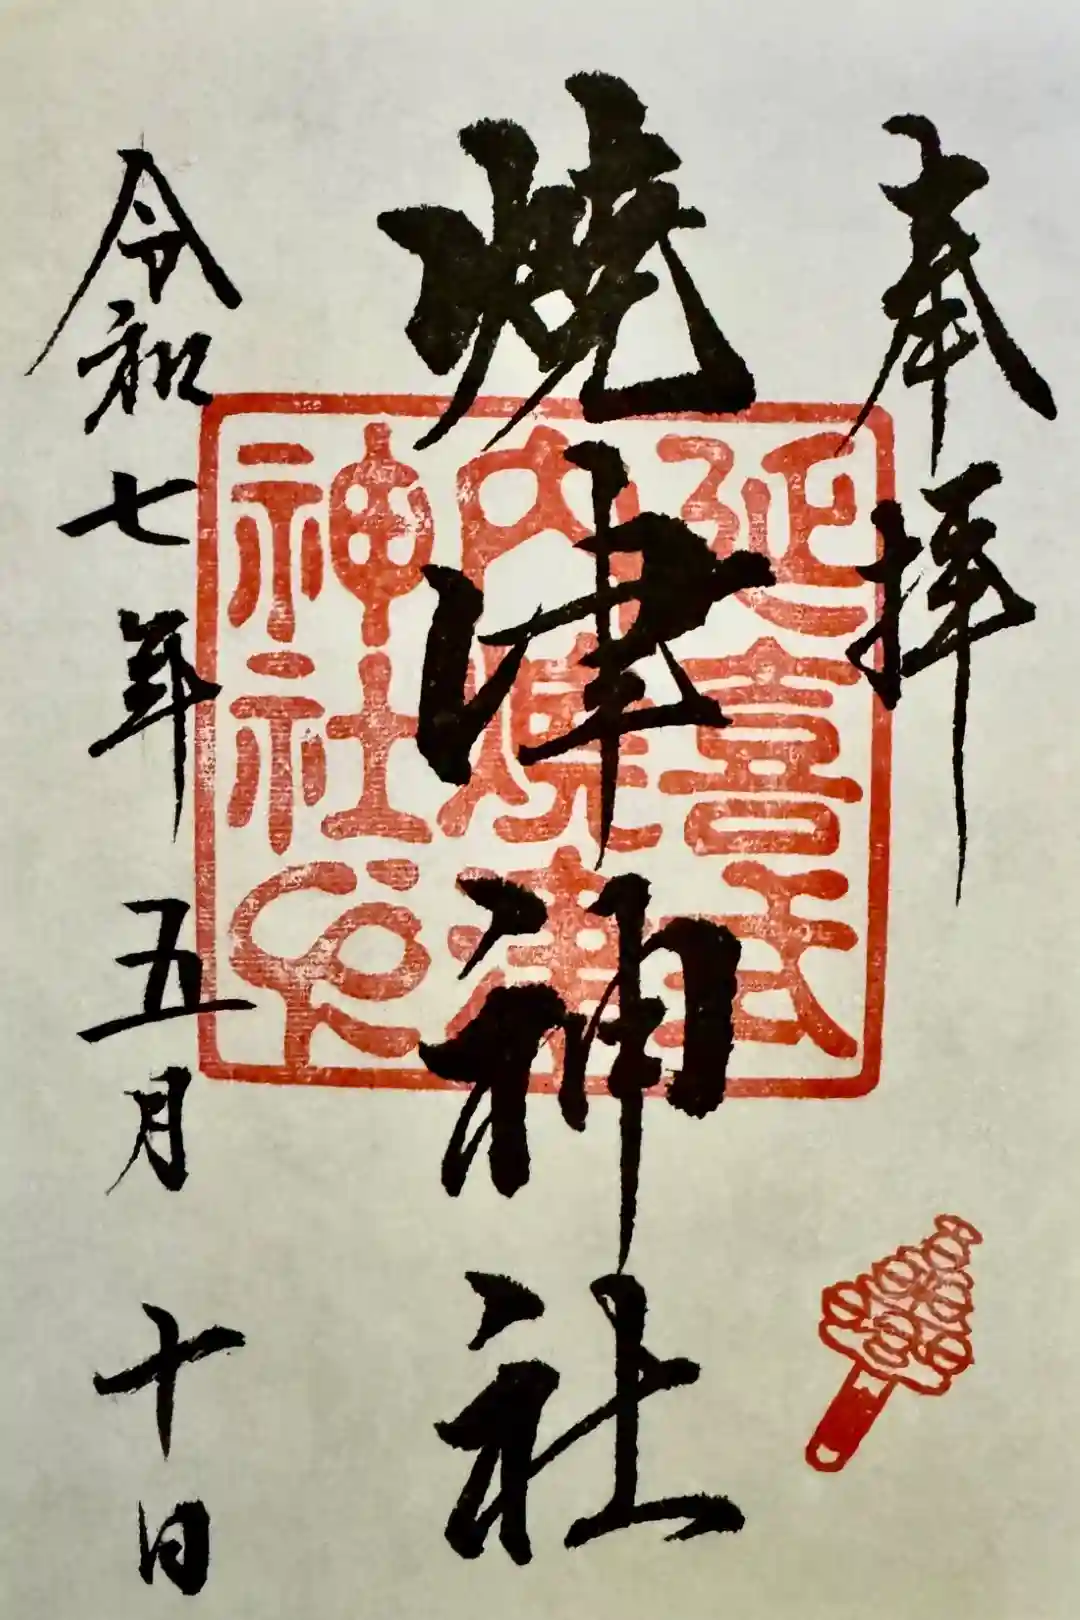 奉拝
延喜式
内焼津
神社印
焼津神社
令和七年 五月 十日